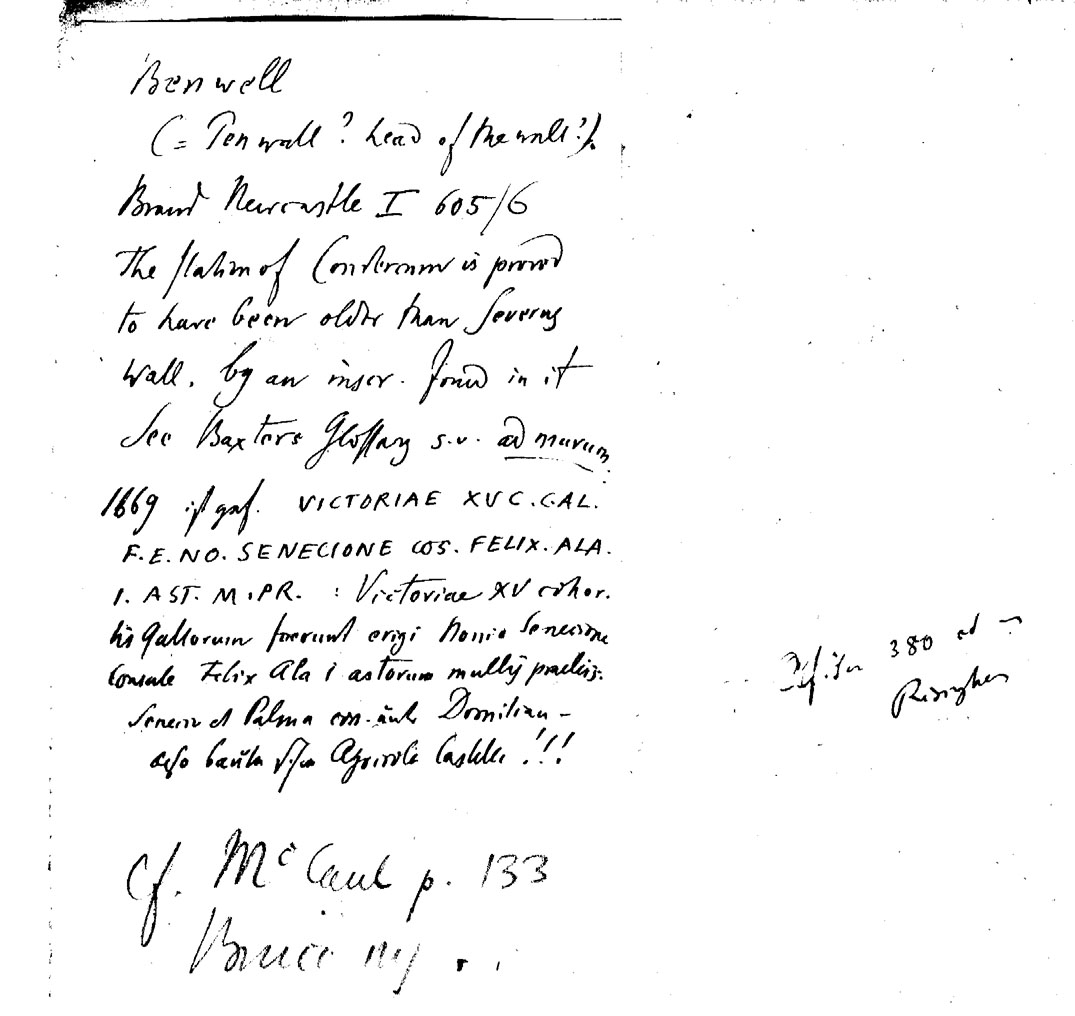 Benwell
(= Penwall? head of the wall?).
Brand Newcastle I 605/6
The station of Condercum is proved
to have been older than Severus
Wall, by an inscr. found in it
See Baxters Glossary s.v. ad murum
1669 ist gef. VICTORIAE XV C.C.AL.
F.E.NO. SENECIONE COS. FELIX. ALA.
I. AST. M.PR. : Victoriae XV cohor.
tis Gallorum fecerunt erigi Nonio Senecione
Consule Felix Ala I astorum multis praeliis.
Senecio et Palma cos. unter Domitian -
also baute schon Agricola Castelle!!!
Cf. McCaul p. 133
Bruce
380
Risingham